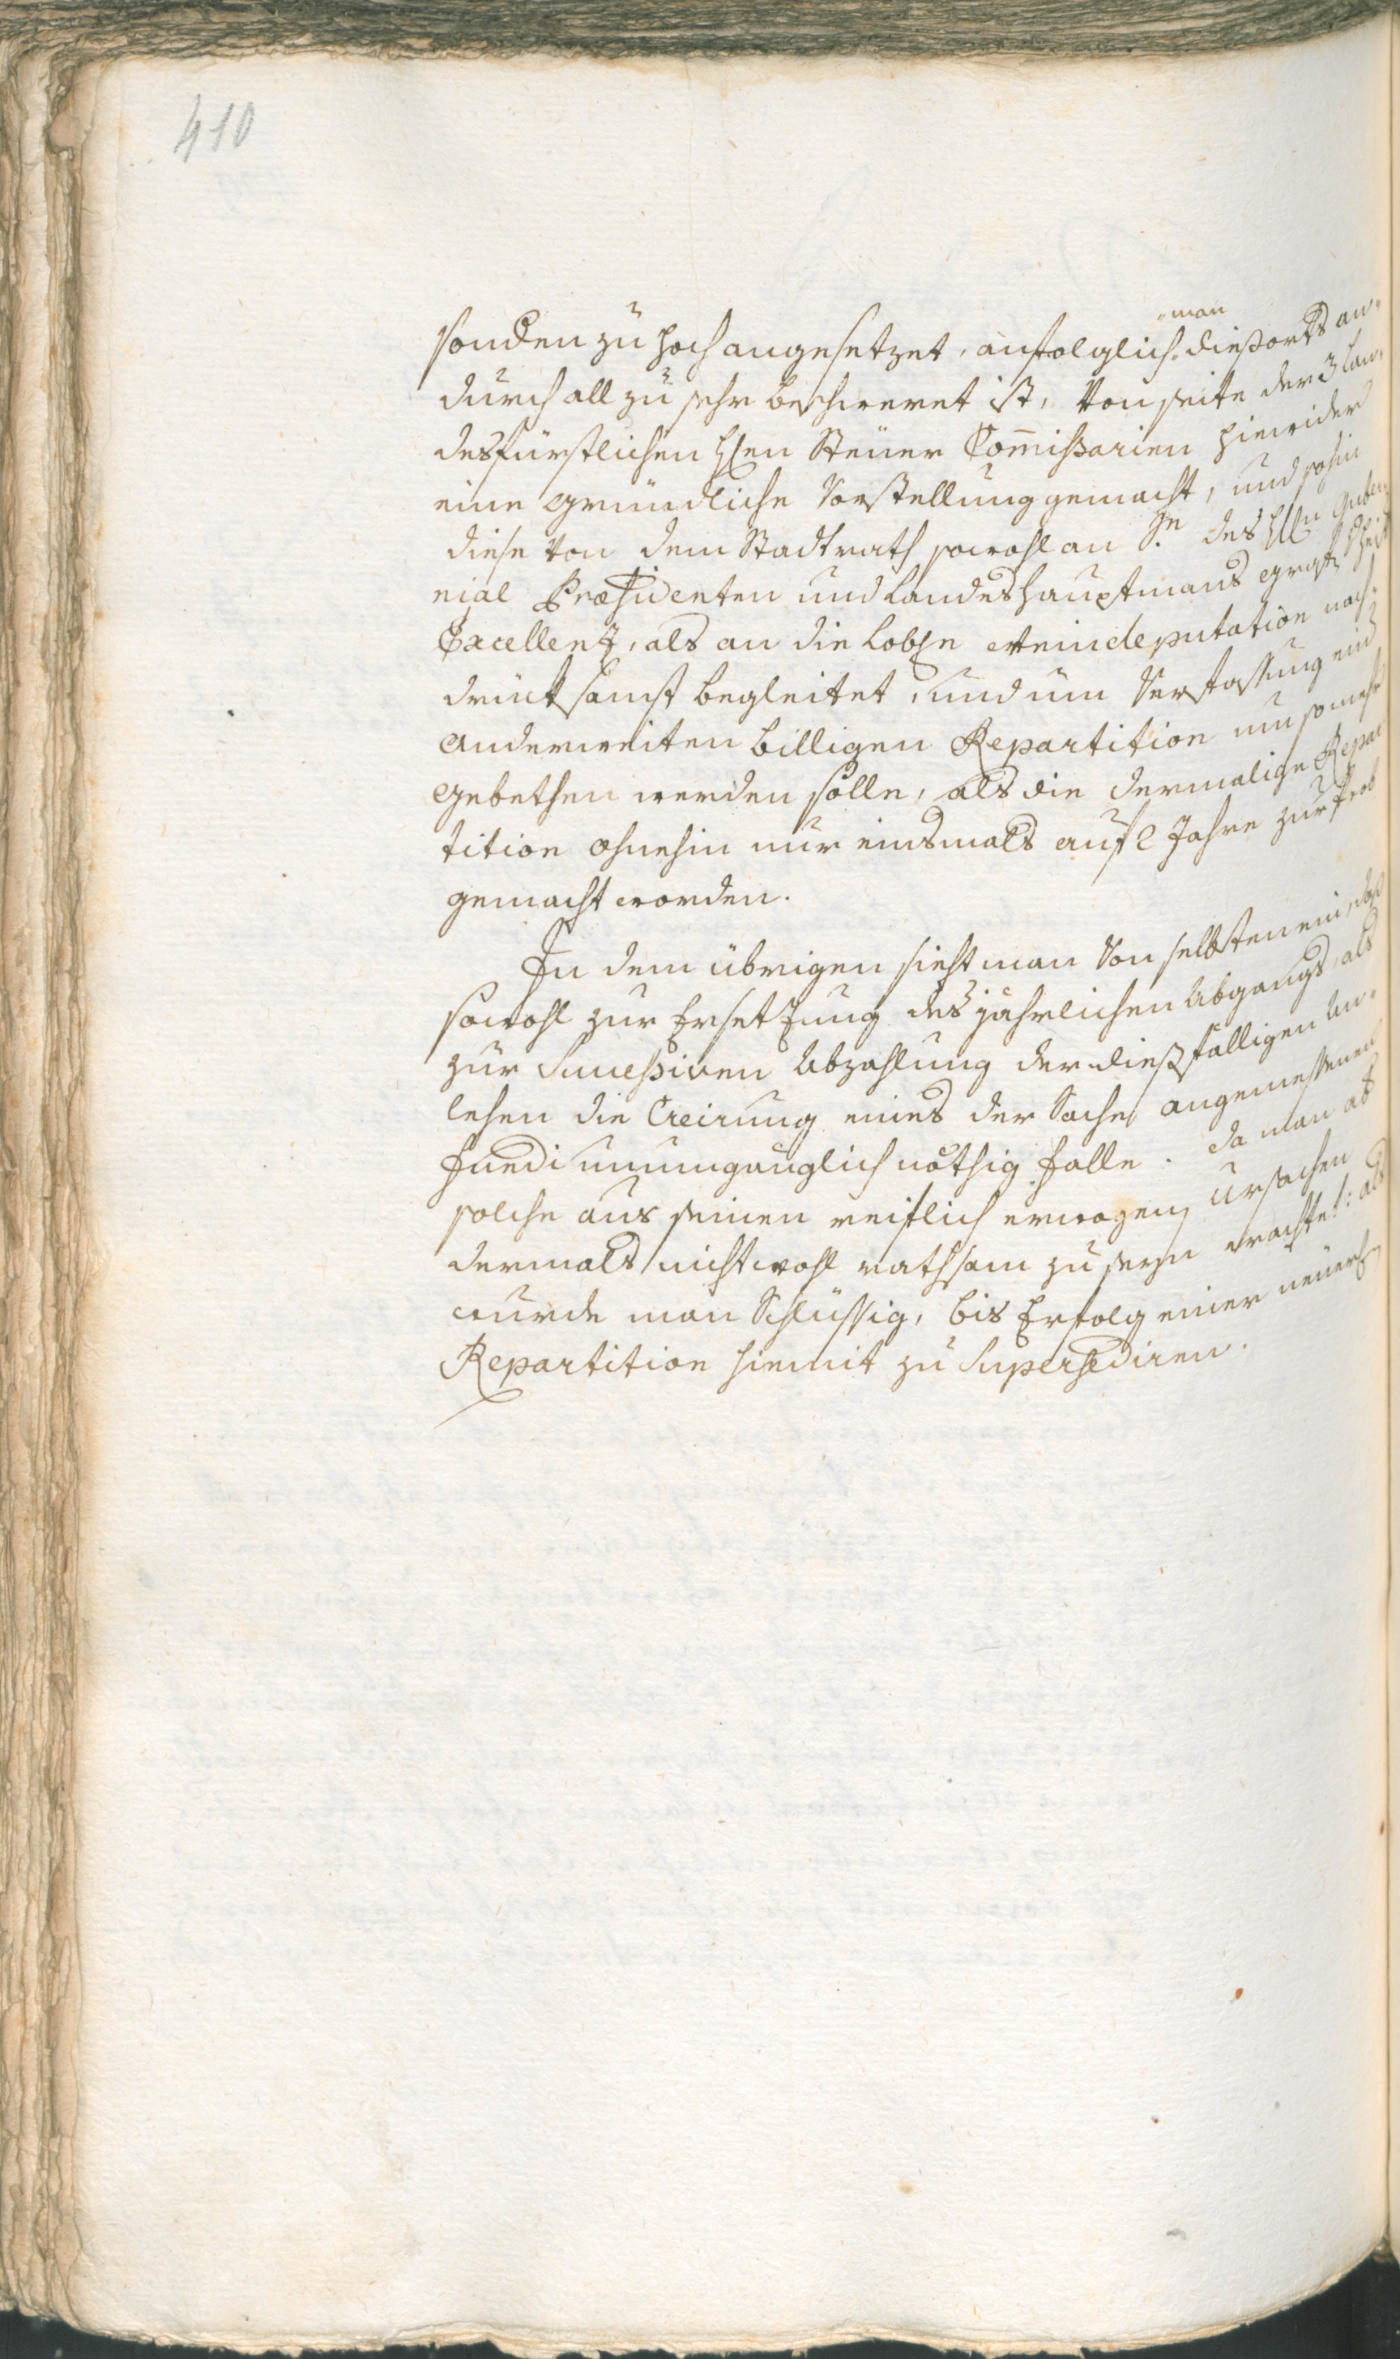 410
man
sonden zu hoch angesetzet, anfolglich dießorts an„
durch all zu sehr beschweret ist, Von seite der 3 lan„
desfürstlichen Hhen Steüer Com̄ißarien hinwider
eine gründliche Vorstellung gemacht, und sohin
diese Von dem Stadtrath sowohl an Se. des Hhn Guber„
nial Præsidenten und Landeshauptmans
Excellenz, als an die Lobhe deputation nach„
druksamst begleitet, und um Verfassung ein
anderweiten billigen Repartition um somehr
gebethen werden solle, als die dermalige Repar
tition ohnehin nur einsmals auf Jahre zur Prob
gemacht worden.
In dem übrigen sieht man Von selbsten ein, daß
sowohl zur Ersetzung des jährlichen Abgangs, als
zur Successiven Abzahlung der dießfälligen An„
lehen die Creirung eines der Sache angemessenen
Fundi unumgänglich nöthig falle. da man ab
solche aus seinen reiflich erwogen Ursachen
dermals nicht wohl rathsam zu seyn erachtet: als
wurde man Schlüssig, bis Erfolg einer neüerl
Repartition hiemit zu Supersediren.